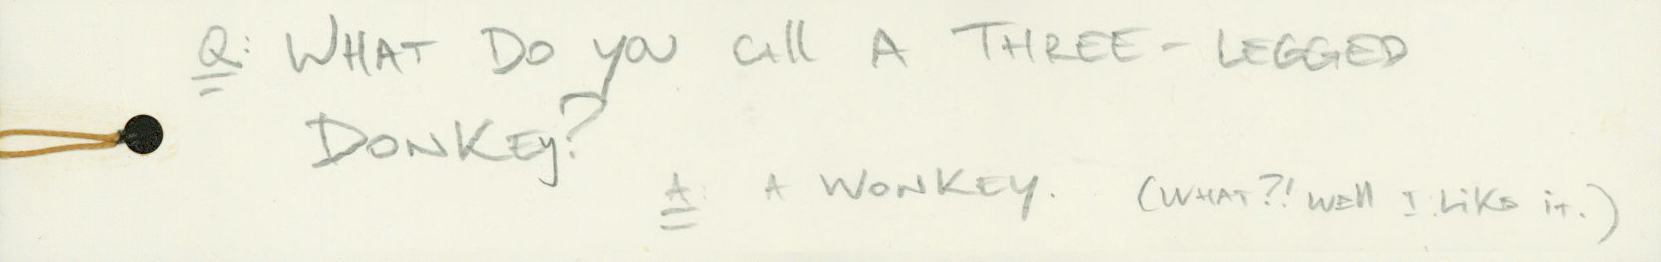 Q: WHAT DO YOU CAll A THREE-LEGGED
DONKEy?
A: A WONKEY. (WHAT?! WEll I LiKE iT.)